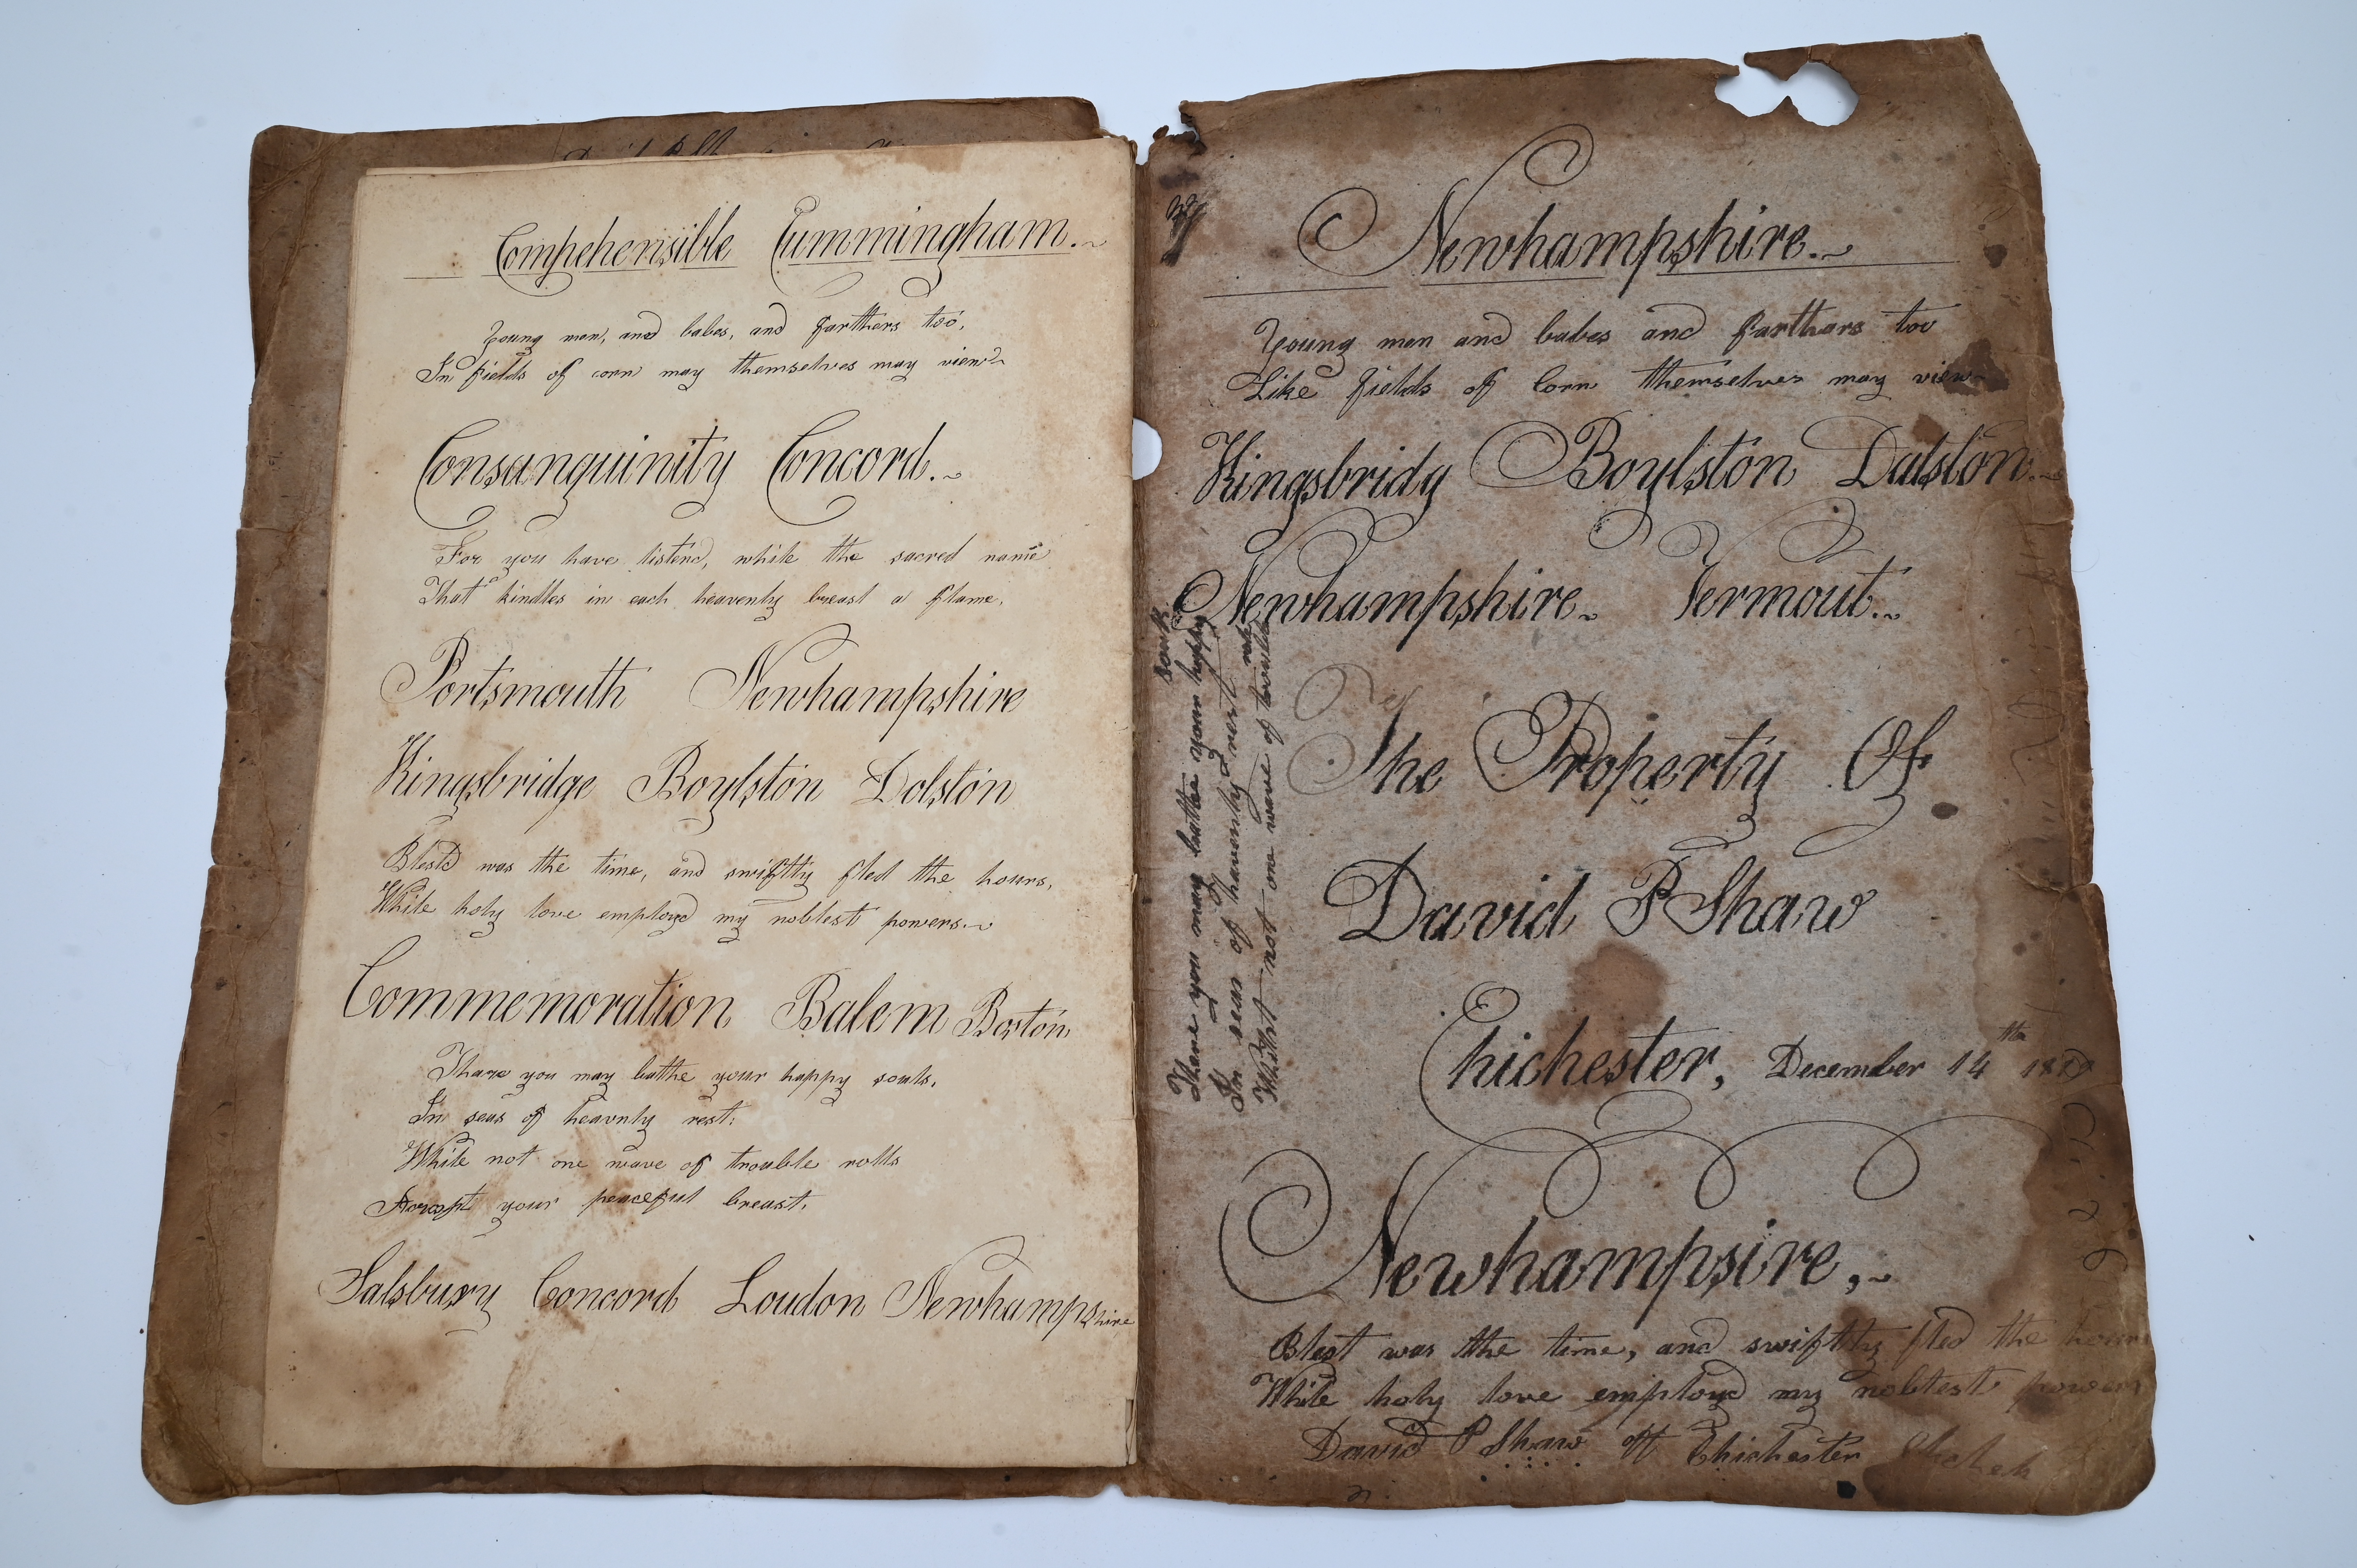 Comphehensible Cummingham.
Young men, and babes, and farthers too,
In fields of corn may themselves may view
Consanguinity Concord.
For you have listend, while the sacred name
That kindles in each heavenly breast a flame.
Portsmouth Newhampshire
Kingsbridge Boylston Dolston
Blestd was the time, and swiftly fled the hours,
While holy love employd my noblest powers.
Commemoration Balem Boston
Thare you may bathe your happy souls,
In seas of heavnly rest.
While not one wave of trouble rolls
your peaceful breast.
Salsbury Concord Loudon Newhampshire
Newhampshire.
Young men and babes and farthars too
Like fields of Corn themselves may view
Kingsbridg Boylston Dalston.
Newhampshire. Vermout.
The Property Of
David P Shaw
Chichester, December 14th
Newhampsire,
Blest was the time, and swiftly fled the hours
While holy love employd my noblest powers
David P Shaw of Chichester
Thare you may bathe your happy
souls
In seas of heavenly rest
not one wave of